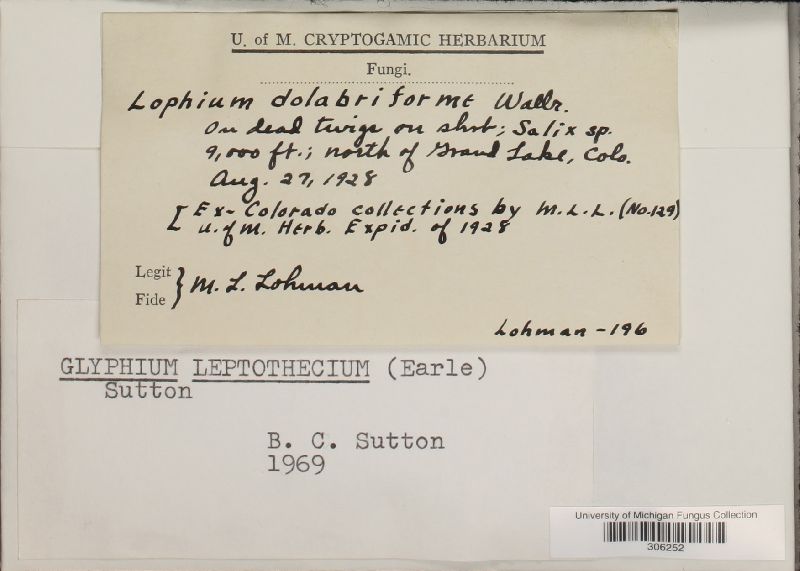 U. of M. CRYPTOGAMIC HERBARIUM
Fungi.
Lophium dolabriforme Wallr.
On dead twigs on shrb; Salix sp.
9,000 ft.; north of Grand Lake, Colo.
Aug. 27, 1928
[Ex-Colorado collections by M.L.L. (No. 129)
U. of M. Herb. Expid. of 1928
Legit
Fide } M. L. Lohman
Lohman - 196
GLYPHIUM LEPTOTHECIUM (Earle)
Sutton
B. C. Sutton
1969
University of Michigan Fungus Collection
306252